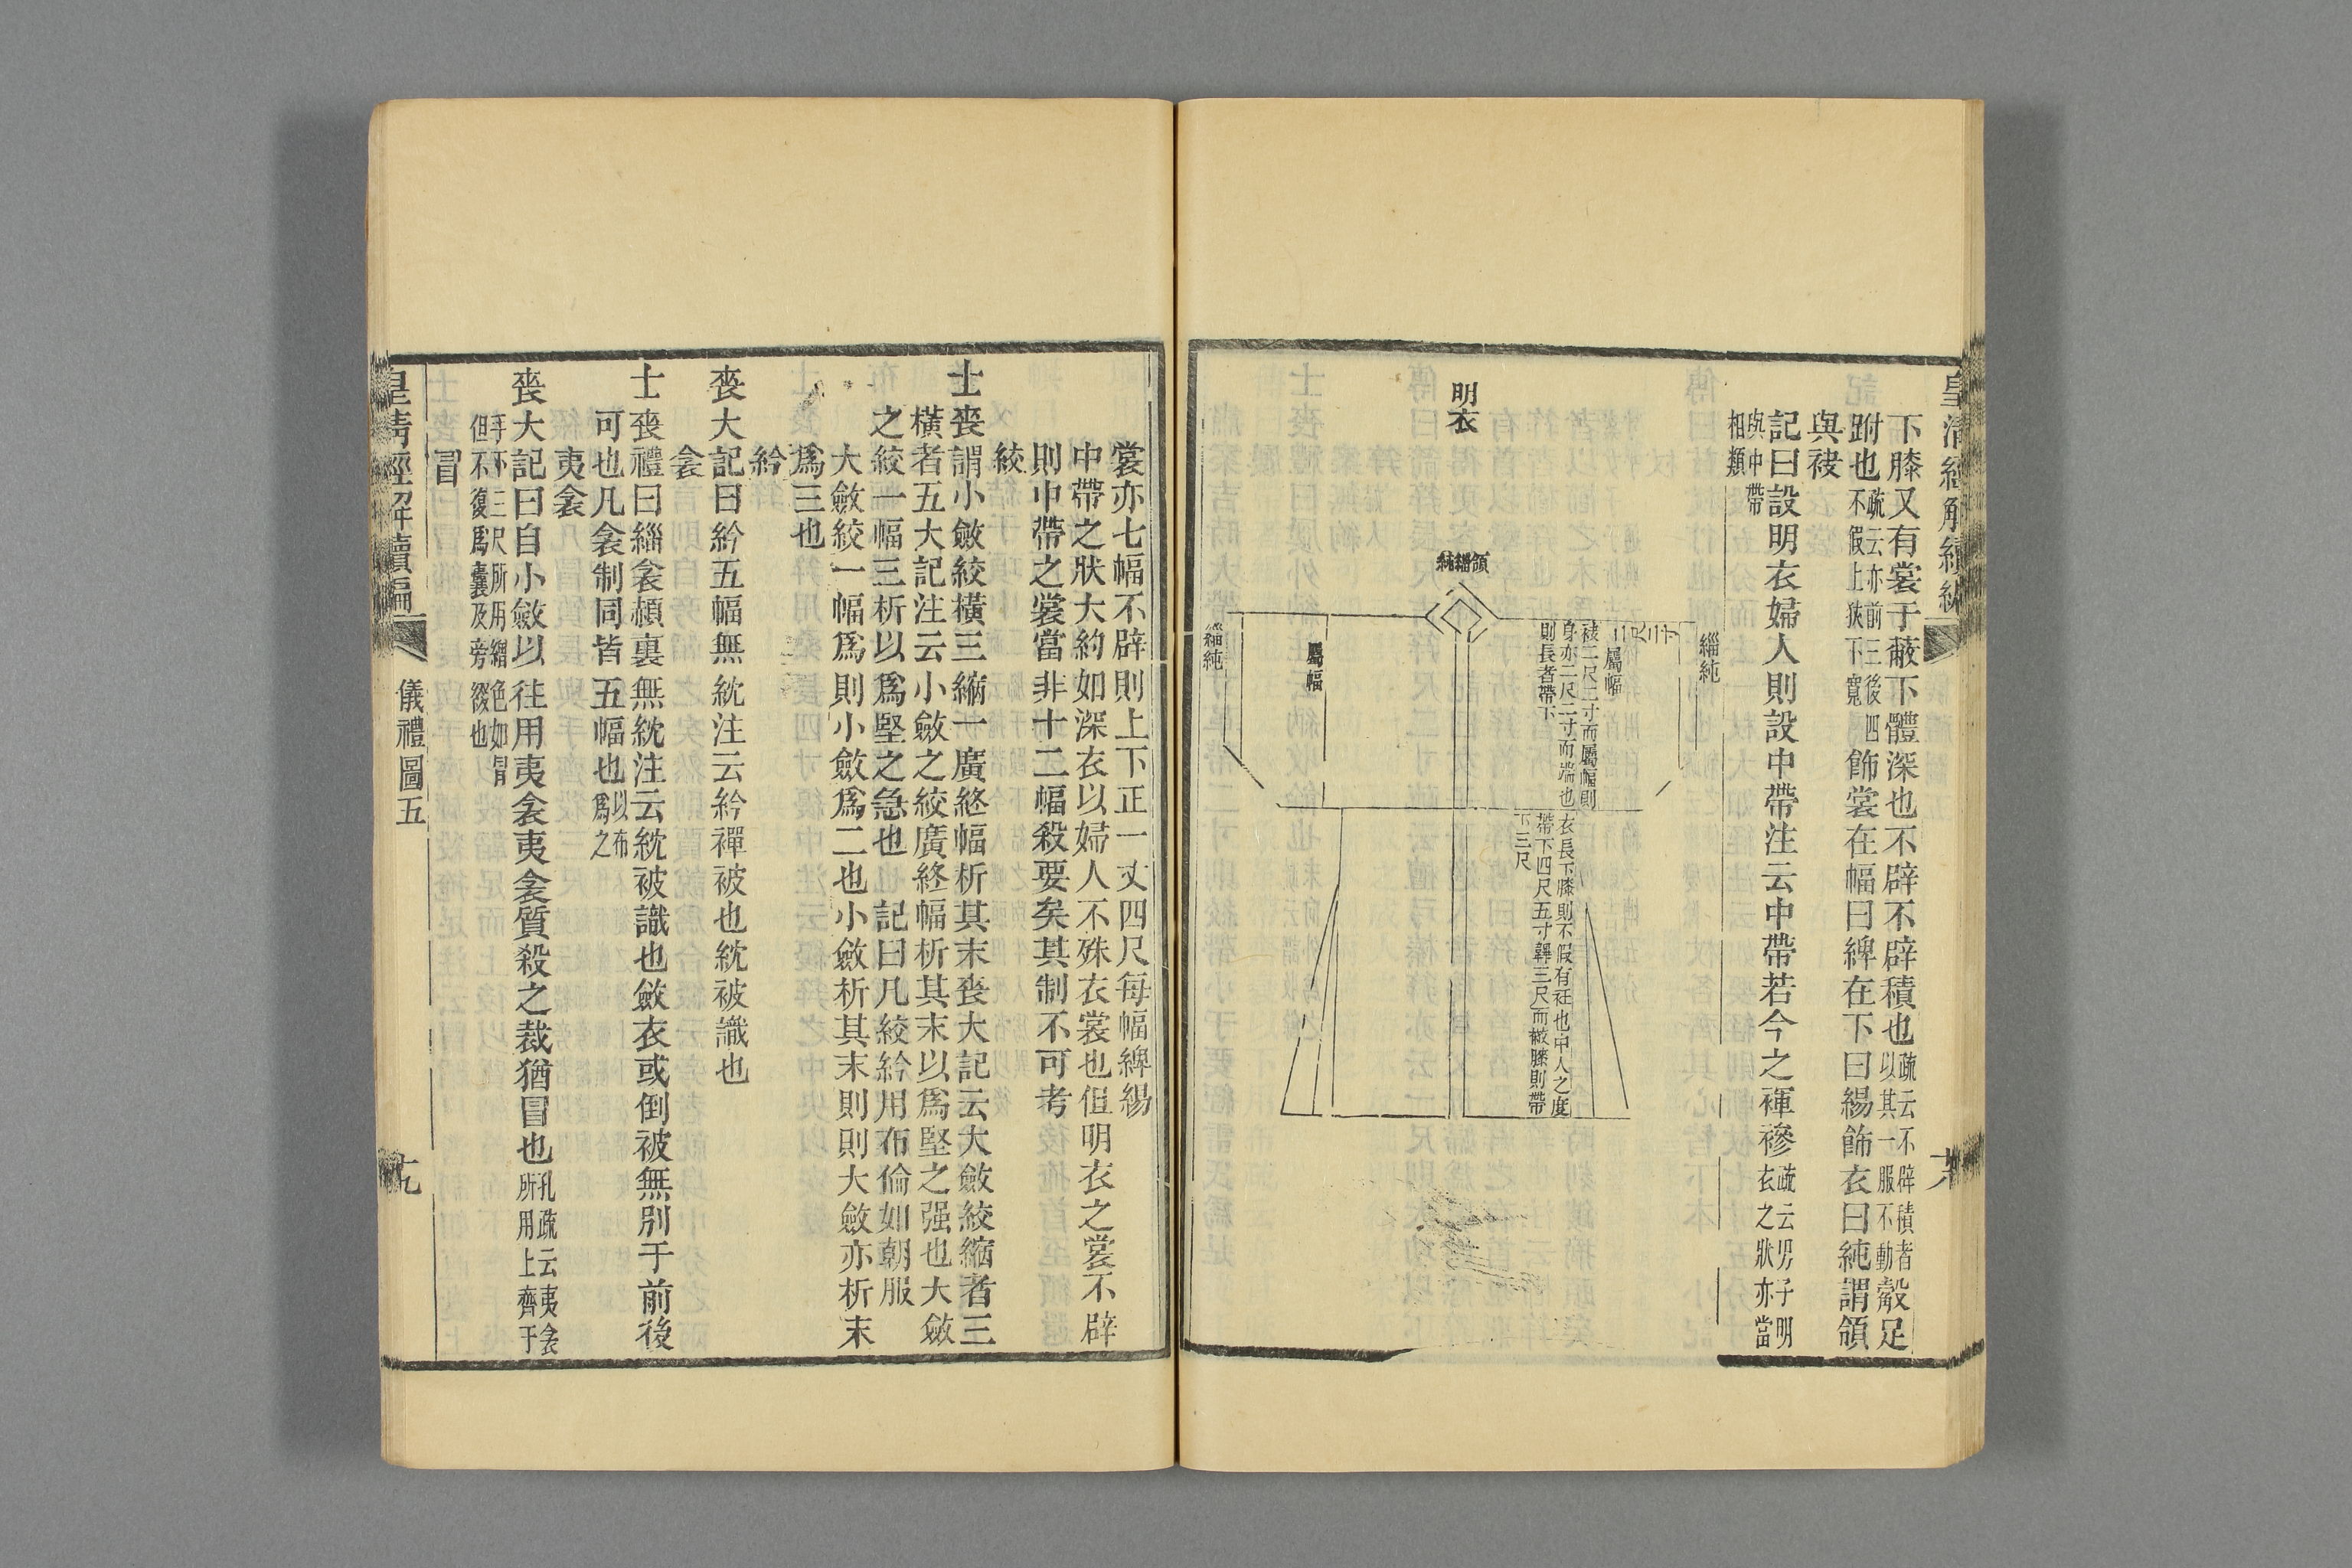 下膝又有裳于蔽下體深也不辟不辟積也疏云不辟積者以其一服不動轂足
跗也疏云亦前三後四不假上狹下寬飾裳在幅曰綼在下曰緆飾衣曰純謂領
與袂
記曰設明衣婦人則設中帶注云中帶若今之褌襂疏云男子明衣之狀亦當
與中帶相類
明衣
領緇純
緇純
屬幅
袂二尺二寸而屬幅則
身亦二尺二寸而端也
則長者帶下
衣長下膝則不假有衽也中人之度
帶下四尺五寸韠三尺而蔽膝則帶
下三尺
屬幅
緇純
裳亦七幅不辟則上下正一丈四尺每幅綼緆
中帶之狀大約如深衣以婦人不殊衣裳也但明衣之裳不辟
則中帶之裳當非十二幅殺要矣其制不可考
絞
士喪謂小斂絞橫三縮一廣終幅析其末喪大記云大斂絞縮者三
橫者五大記注云小斂之絞廣終幅析其末以爲堅之强也大斂
之絞一幅三析以爲堅之急也記曰凡絞紟用布倫如朝服
大斂絞一幅爲則小斂爲二也小斂析其末則則大斂亦析末
爲三也
紟
喪大記曰紟五幅無紞注云紟襌被也紞被識也
衾
士喪禮曰緇衾赬裏無紞注云紞被識也斂衣或倒被無別于前後
可也凡衾制同皆五幅也以布爲之
夷衾
喪大記曰自小斂以往用夷衾夷衾質殺之裁猶冒也孔疏云夷衾所用上齊于
手下三尺所用繒色如冒但不復爲囊及旁綴也
冒
皇清經解續編
儀禮圖五
十九